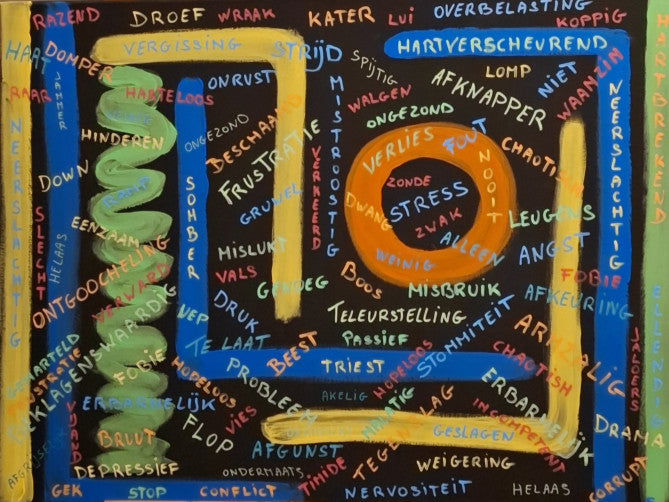 RAZEND
DROEF
WRAAK
KATER
LUI
OVERBELASTING
KOPPIG
HART
DOMPER
VERGISSING
STRIJD
HARTVERSCHEUREND
HARTBREKEND
JAMMER
RAAR
HARTELOOS
ONRUST
MISTROOSTIG
SPIJTIG
WALGEN
AFKNAPPER
LOMP
NIET
WAANZIN
NEERSLACHTIG
NEERSLACHTIG
HINDEREN
ONGEZOND
BESCHAAMD
FRUSTRATIE
VERKEERD
ONGEZOND
VERLIES
FOUT
NOOIT
CHAOTISH
DOWN
SOHBER
GRUWEL
ZONDE
STRESS
ZWAK
DWANG
LEUGENS
SLECHT
HELAAS
EENZAAM
MISLUKT
ALLEEN
ANGST
ONTGOOCHELING
VERWARD
VALS
GENOEG
BOOS
WEINIG
MISBRUIK
FOBIE
AFKEURING
BEKLAGENSWAARDIG
NEP
DRUK
TELEURSTELLING
STOMMITEIT
ARMZALIG
ELLENDIG
TE LAAT
BEEST
PASSIEF
JALOERS
GEHARTELD
FRUSTRATIE
FOBIE
HOPELOOS
PROBLEEM
TRIEST
HOPELOOS
CHAOTISH
ERBARMELIJK
VIJAND
ERBARMELIJK
VIES
AKELIG
INCOMPETENT
DRAMA
BRUUT
FLOP
AFGUNST
GESLAGEN
DEPRESSIEF
ONDERTAATS
TIMIDE
WEIGERING
GEK
STOP
CONFLICT
NERVOSITEIT
HELAAS
CORRUPT